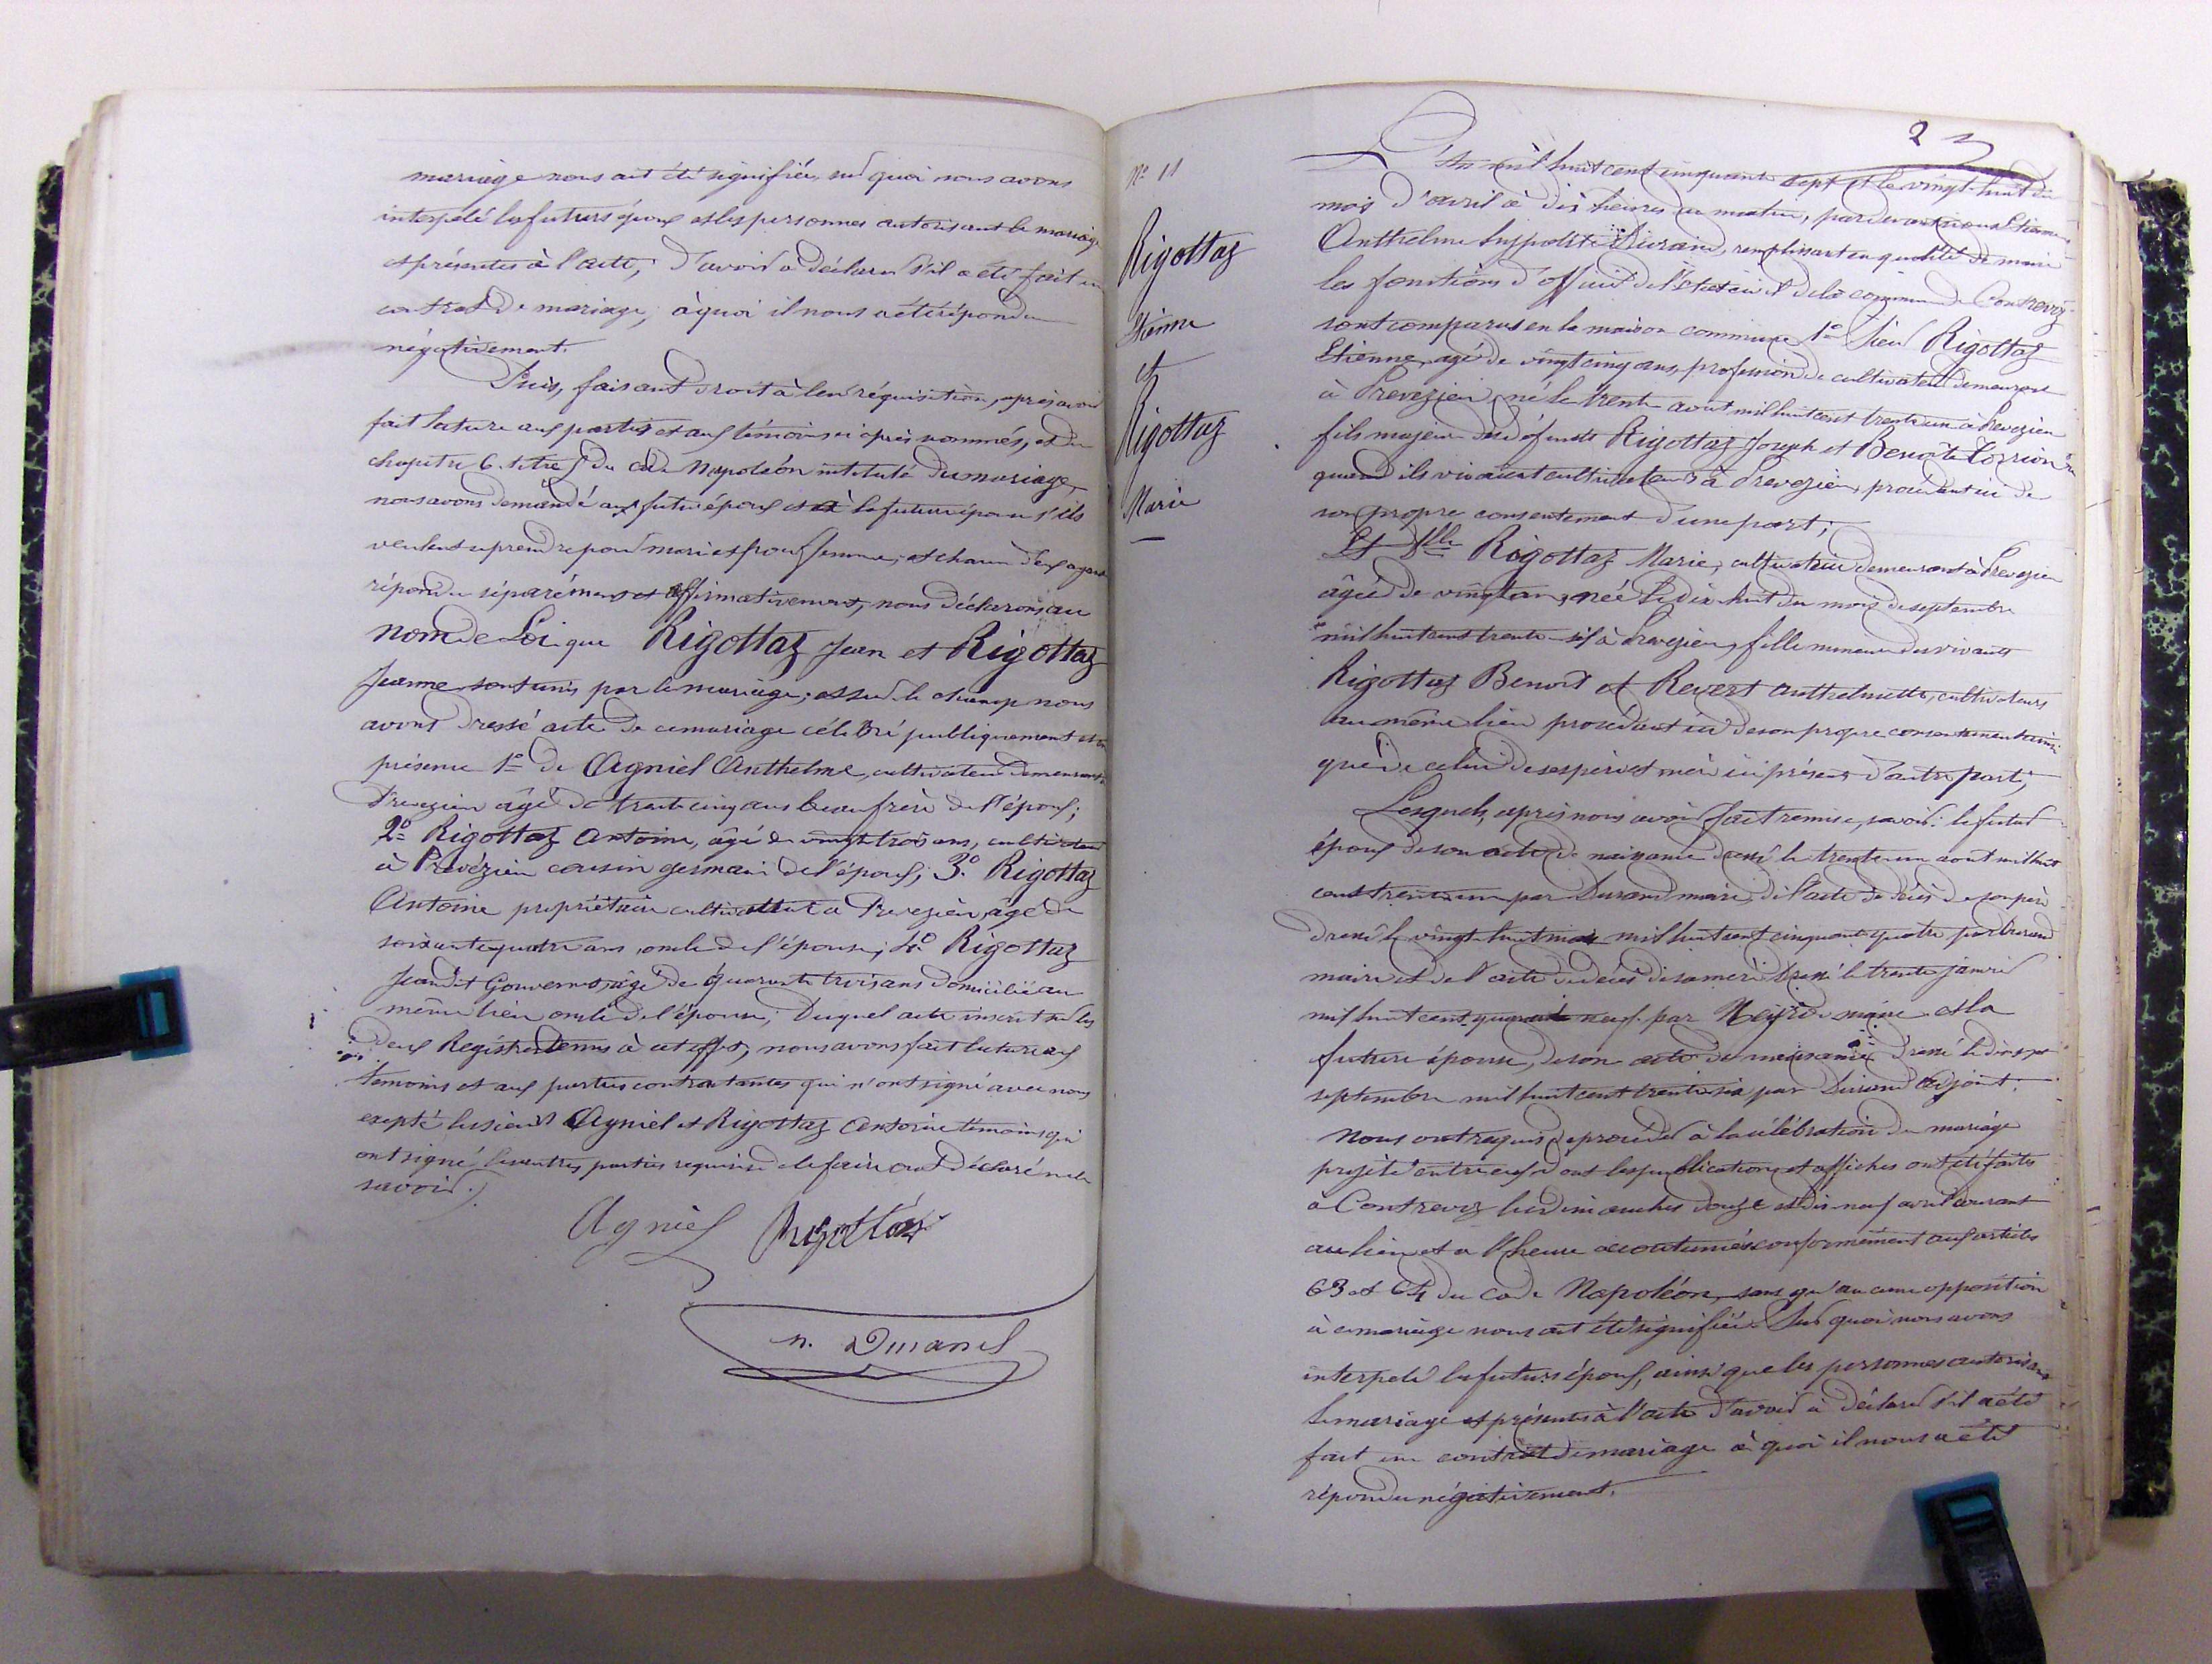 mariage nous ait été signifiée, sur quoi nous avons
interpelé les futurs époux et les personnes autorisant le mariage
et présentes à l'acte, d'avoir a déclarer s'il a été fait un
contrat de mariage, à quoi il nous a été répondu
négativement.
Puis, faisant droit à leur réquisition, après avoir
fait lecture aux parties et aux témoins ci après nommés, et du
chapitre 6. titre 5 du code Napoléon intitulé du mariage,
nous avons demandé aux futur époux et à la future épouse s'ils
veulent se prendre pour mari et pour femme, et chacun d'eux ayant
répondu séparément et affirmativement, nous déclarons au
nom de Loi que Rigottaz Jean et Rigottaz
Jeanne sont unis par le mariage; et sur le champ nous
avons dressé acte de ce mariage célébré publiquement et en
présence 1° de Agniel Anthelme, cultivateur demeurant à
Prevezieu âgé de trente cinq ans beau frère de l'époux;
2° Rigottaz Antoine, âgé de vingt trois ans, cultivateur
à Prevézieu cousin germain de l'époux; 3° Rigottaz
Antoine propriétaire cultivateur a Prevezieu, âgé de
soixante quatre ans, oncle de l'épouse; 4° Rigottaz
Jean dit Gouvernet, âgé de quarante trois ans domicilié au
même lieu oncle de l'épouse; Duquel acte inscrit sur les
deux Registres tenus à cet effet, nous avons fait lecture aux
témoins et aux parties contractantes qui n'ont signé avec nous
excepté les sieurs Agniel et Rigottaz Antoine témoins qui
ont signé, les autres parties requises de le faire ont déclaré ne le
savoir.
Agniel Rigottaz
h. Durand
23
N° 11
Rigottaz
Etienne
et
Rigottaz
Marie
L'an mil huit cent cinquante sept et le vingt-huit du
mois d'avril à dix heures du matin, pardevant nous Etienne
Anthelme hyppolite Durand, remplissant en qualité de maire
les fonctions d'officier de l'état civil de la commune de Contrevoz
sont comparus en la maison commune 1° Sieur Rigottaz
Etienne, agé de vingt cinq ans, profession de cultivateur demeurant
à Prevezieu, né le trente août mil huit cent trente un à Prevezieu
fils majeur des défunts Rigottaz Joseph et Benoîte
quand ils vivaient cultivateurs à Prevezieu, procédant ici de
son propre consentement d'une part;
Et Dlle Rigottaz Marie, cultivatrice demeurant à Prevezieu
âgée de vingt ans, née le dix huit du mois de septembre
mil huit cent trente-six à Prevezieu, fille mineure des vivants
Rigottaz Benoit et Revert Anthelmette, cultivateurs
au même lieu procédant ici de son propre consentement ainsi
que de celui de ses père et mère ici présens d'autre part;
Lesquels, après nous avoir fait remise, savoir: le futur
époux de son acte de naissance dressé le trente un aout mil huit
cent trente un par Durand maire, de l'acte de décès de son père
dressé le vingt-huit mai mil huit cent cinquante quatre par Durand
maire et de l'acte de décès de sa mère dressé le trente janvier
mil huit cent quarante neuf par maire et la
future épouse, de son acte de naissance dressé le dix sept
septembre mil huit cent trente six par Durand adjoint.
Nous ont requis de procéder à la célébration du mariage
projeté entre eux dont les publications et affiches ont été faites
à Contrevoz les dimanches douze et dix-neuf avril courant
au lieu et a l'heure accoutumés conformément aux articles
63 et 64 du code Napoléon, sans qu'aucune opposition
à ce mariage nous ait été signifiée. Sur quoi nous avons
interpelé les futurs époux, ainsi que les personnes autorisant
le mariage et présentes à l'acte d'avoir à déclarer s'il a été
fait un contrat de mariage à quoi il nous a été
répondu négativement.